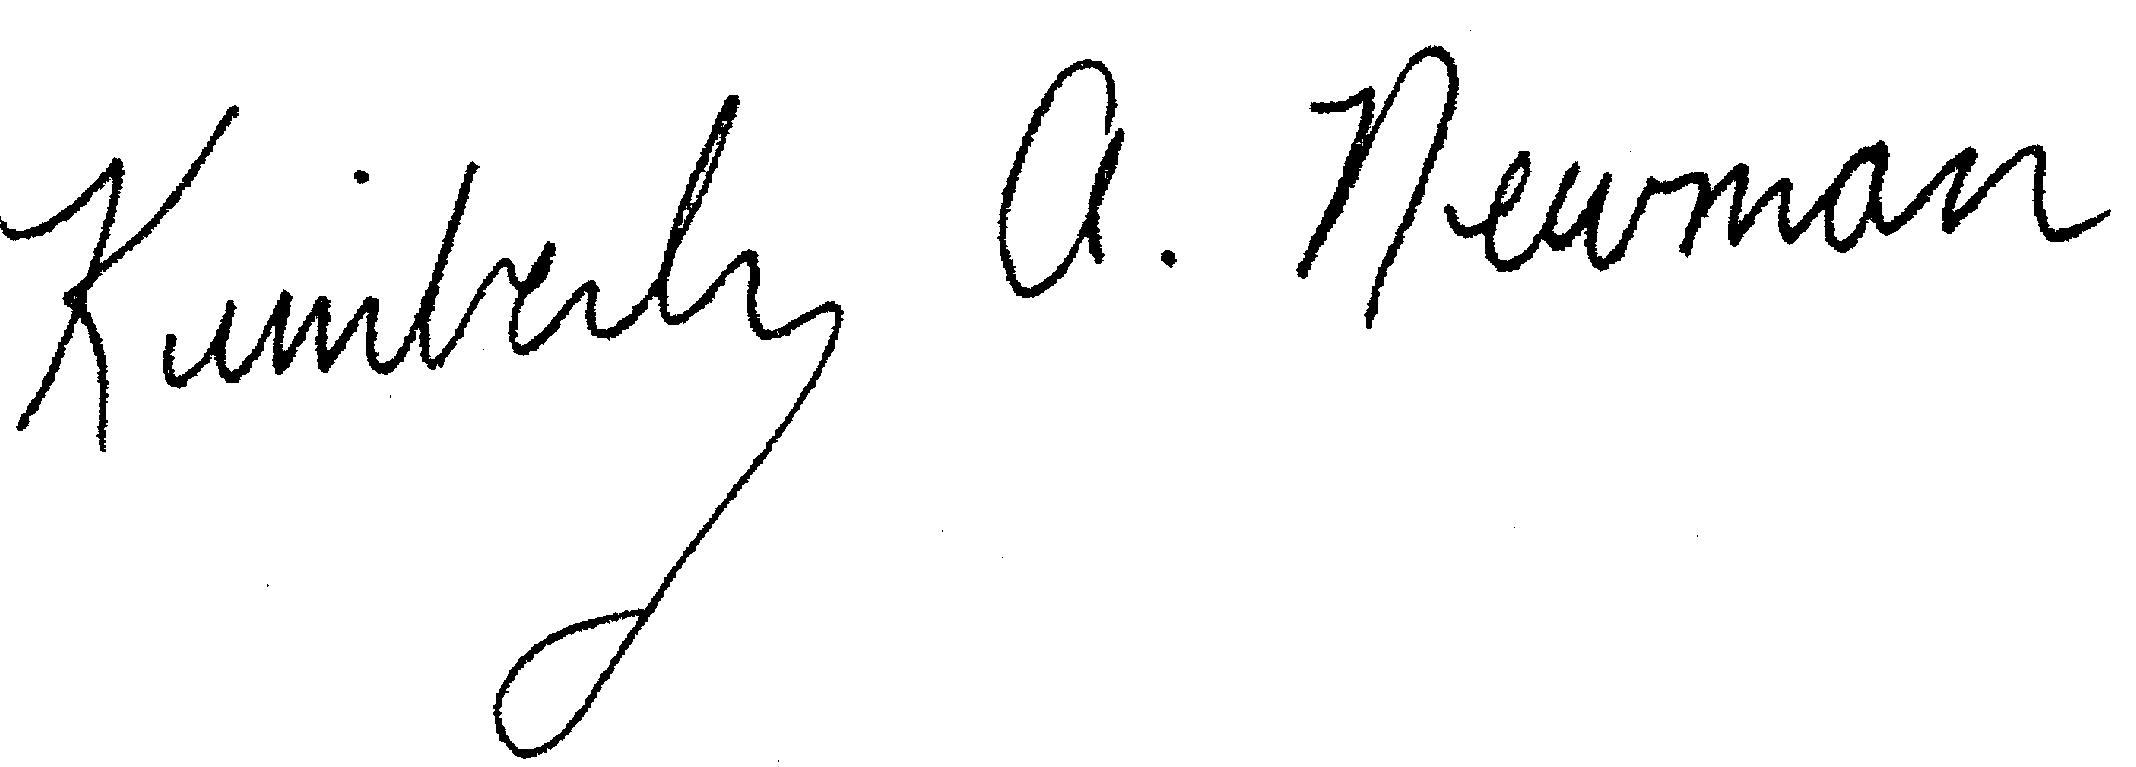 Kimberly A. Newman